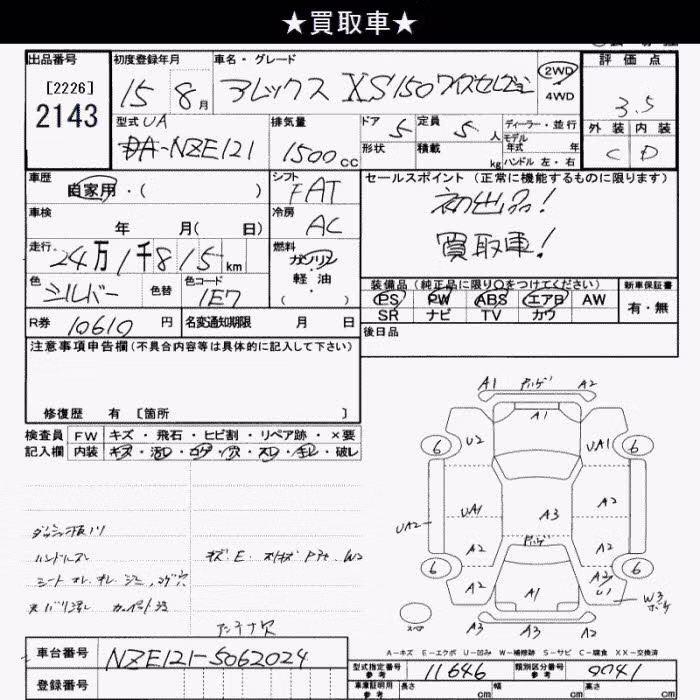 ★買取車★
出品番号
[2226]
2143
初度登録年月
15 8月
車名・グレード
アレックス XS150ワイズセレクション
2WD
4WD
評価点
3.5
外装 内装
C D
型式 UA
DA-NZE121
排気量
1500cc
ドア 5
形状
定員 5人
積載 kg
ディーラー・並行
モデル
年式 年
ハンドル 左・右
車歴
自家用・( )
シフト
FAT
車検
年 月( 日)
冷房
AC
走行
24万1千815km
燃料
ガソリン
軽油
( )
色
シルバー
色替
色コード
1E7
R券 10610円
名変通知期限 月 日
セールスポイント(正常に機能するものに限ります)
初出品!
買取車!
装備品(純正品に限り○をつけてください)
PS PW ABS エアB AW
SR ナビ TV カワ
新車保証書
有・無
後日品
注意事項申告欄(不具合内容等は具体的に記入して下さい)
修復歴 有 〔箇所 〕
検査員
記入欄
FW キズ・飛石・ヒビ割・リペア跡・×要
内装 キズ・汚レ・コゲ・穴・スレ・キレ・破レ
ハンドルスレ
A1 A2
A1
6 U2 UA1 6
UA1 A3 A2
UA2
A2 A2
6 A2 A1 6
U1 W3
A3 A3 A2
スペア
A-キズ E-エクボ U-凹み W-補修跡 S-サビ C-腐食 XX-交換済
車台番号
NZE121-5062024
登録番号
型式指定番号
参考
11646
類別区分番号
参考
9041
車庫証明用
参考
長さ cm
幅 cm
高さ cm